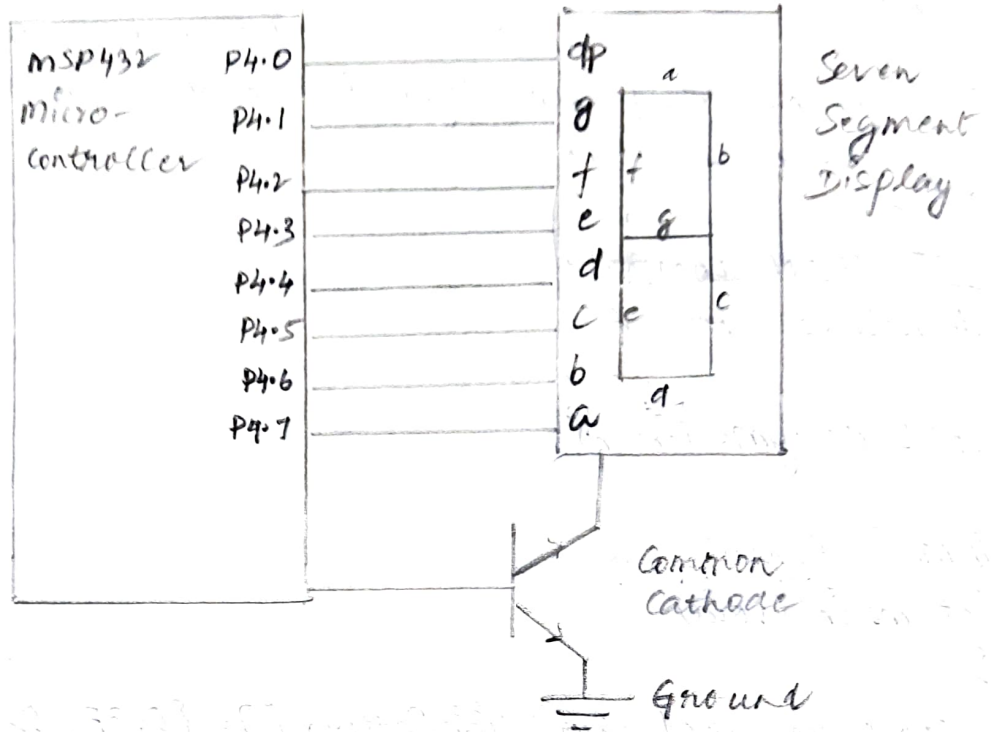 MSP432
Micro-
Controller
P4.0
P4.1
P4.2
P4.3
P4.4
P4.5
P4.6
P4.7
dp
g
f
e
d
c
b
a
a
b
f
g
e
c
d
Seven
Segment
Display
Common
Cathode
Ground